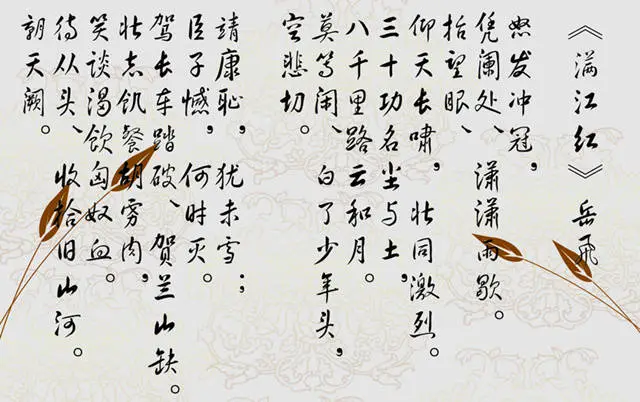 《满江红》岳飞
怒发冲冠,
凭阑处、潇潇雨歇。
抬望眼、
仰天长啸,壮同激烈。
三十功名尘与土,
八千里路云和月。
莫等闲、白了少年头,
空悲切。
靖康耻,犹未雪;
臣子憾,何时灭。
驾长车踏破、贺兰山缺。
壮志饥餐胡虏肉,
笑谈渴饮匈奴血。
待从头、收拾旧山河。
朝天阙。